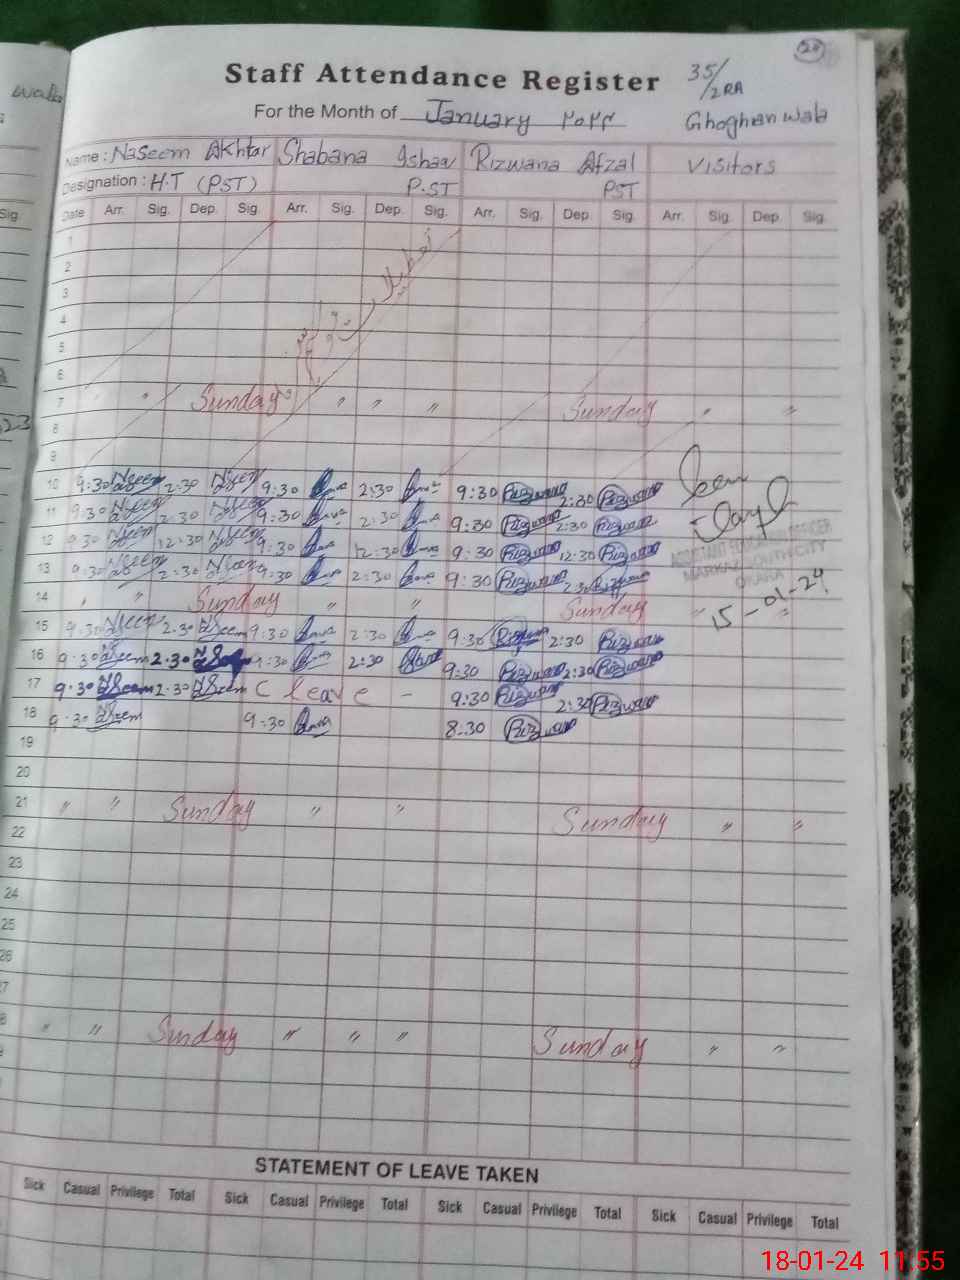 24
Staff Attendance Register
35/
2RA
For the Month of January ۲۰۲۴
Ghoghian wala
Name : Naseem Akhtar Shabana Ishaq Rizwana Afzal Visitors
Designation : H.T (PST) P.ST PST
Date Arr. Sig. Dep. Sig. Arr. Sig. Dep. Sig. Arr. Sig. Dep. Sig. Arr. Sig. Dep. Sig.
1
2
3
4
5
6
7 " Sunday " " " Sunday " "
8
9
10 9:30 NSeem 2:30 NSeem 9:30 2:30 9:30 Rizwana 2:30 Rizwana
11 9:30 NSeem 2:30 NSeem 9:30 2:30 9:30 Rizwana 2:30 Rizwana
12 9:30 NSeem 12:30 NSeem 9:30 12:30 9:30 Rizwana 12:30 Rizwana
ASSISTANT EDUCATION OFFICER
MARKAZ SOUTH CITY
OKARA
13 9:30 NSeem 2:30 NSeem 9:30 2:30 9:30 Rizwana 2:30 Rizwana
14 " " Sunday " " Sunday " "
15-01-24
15 9:30 NSeem 2:30 NSeem 9:30 2:30 9:30 Rizwana 2:30 Rizwana
16 9:30 NSeem 2:30 9:30 2:30 9:30 Rizwana 2:30 Rizwana
17 9:30 NSeem 2:30 NSeem C leave - 9:30 Rizwana 2:30 Rizwana
18 9:30 NSeem 9:30 8:30 Rizwana
19
20
21 " " Sunday " " Sunday " "
22
23
24
25
26
7
8 " " Sunday " " " Sunday " "
STATEMENT OF LEAVE TAKEN
Sick Casual Privilege Total Sick Casual Privilege Total Sick Casual Privilege Total Sick Casual Privilege Total
18-01-24 11:55